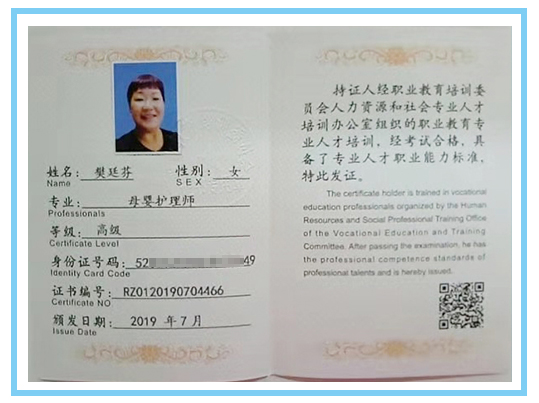 姓名： 樊廷芬 性别： 女
Name SEX
专业： 母婴护理师
Professionals
等级： 高级
Certificate Level
身份证号码： 52 49
Identity Card Code
证书编号： RZ0120190704466
Certificate NO.
颁发日期： 2019 年 7 月
Issue Date
持证人经职业教育培训委
员会人力资源和社会专业人才
培训办公室组织的职业教育专
业人才培训，经考试合格，具
备了专业人才职业能力标准，
特此发证。
The certificate holder is trained in vocational
education professionals organized by the Human
Resources and Social Professional Training Office
of the Vocational Education and Training
Committee. After passing the examination, he has
the professional competence standards of
professional talents and is hereby issued.